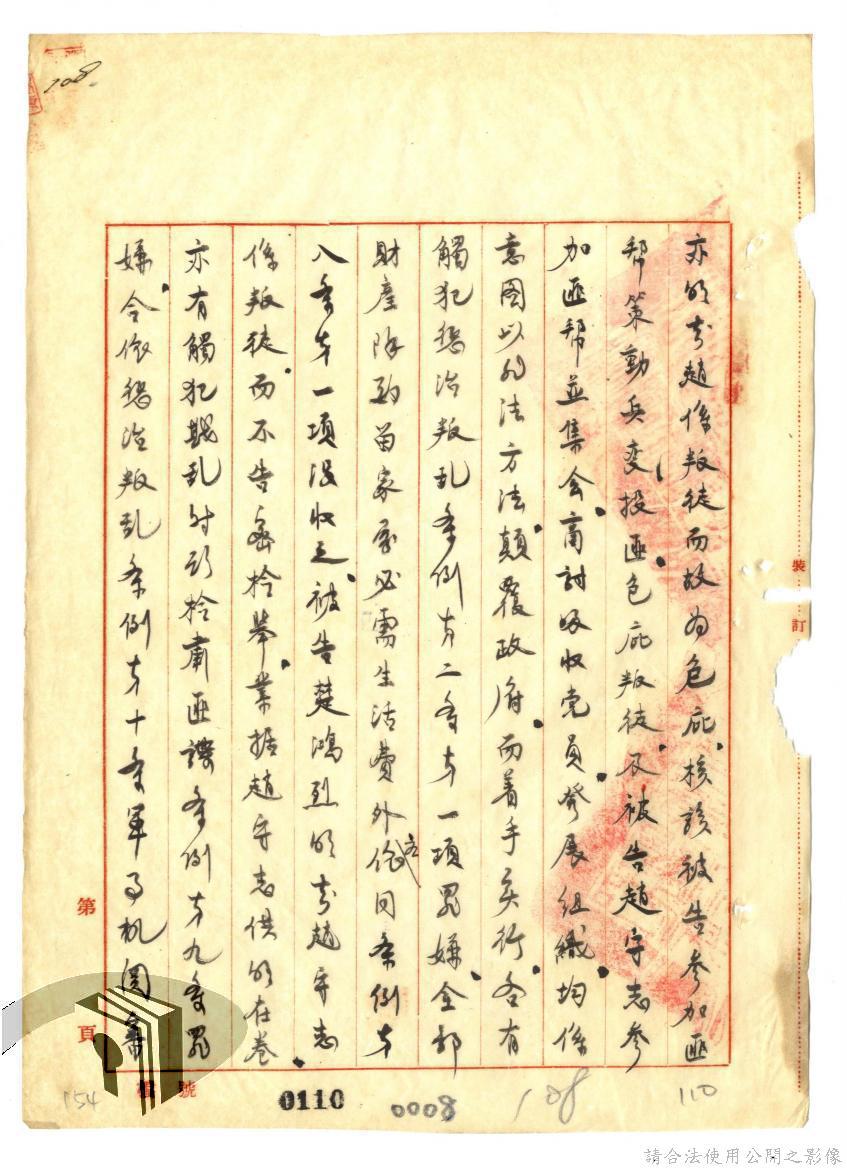 108
亦明知趙係叛徒而故为包庇、核該被告参加匪
帮策動兵变投匪、包庇叛徒、及被告趙守志参
加匪帮並集会、商討吸收党員、發展組織、均係
意图以非法方法、顛覆政府、而着手实行、各有
觸犯懲治叛乱条例第二条第一項罪嫌、全部
財産除酌留家屬必需生活費外依同条例第
八条第一項没收之、被告楚鴻烈明知趙守志
係叛徒、而不告密检舉、業據趙守志供明在卷、
亦有觸犯戡乱时期检肅匪諜条例第九条罪
嫌、合依懲治叛乱条例第十条軍事机関審
裝
訂
第
頁
檔號
154
0110
0008
108
110
請合法使用公開之影像